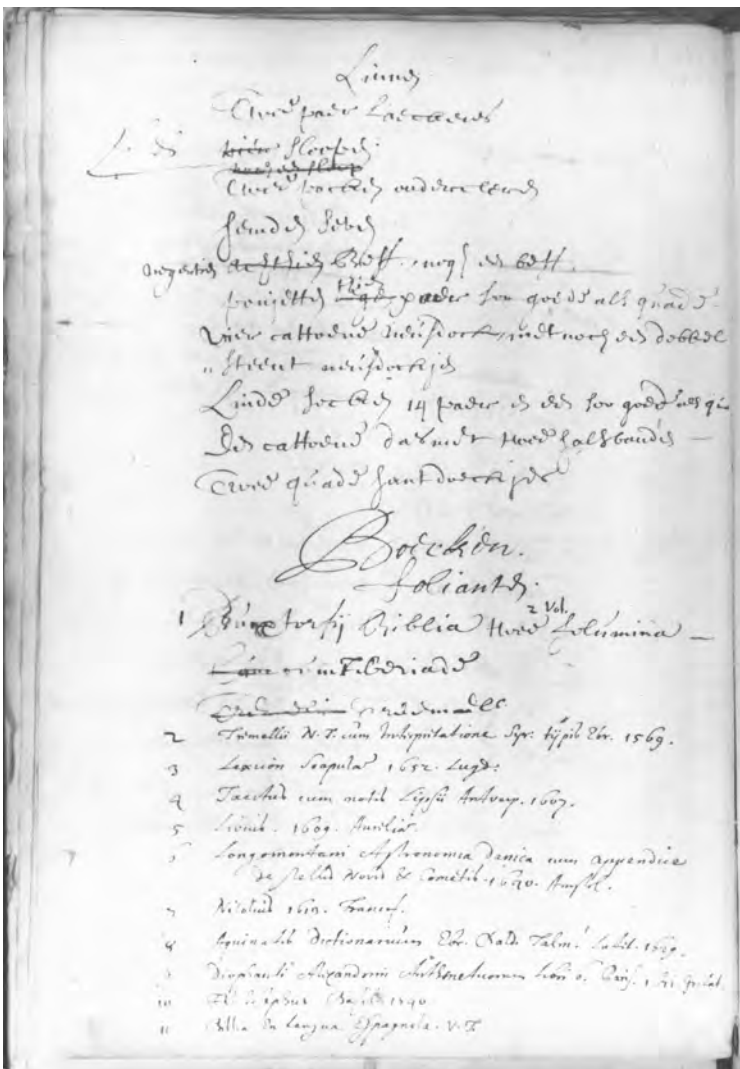 Linnen
Twee paer Laeckens
sloopen
Twee onderclederen
hemden seven
negentien achthien Beff. nog een beff.
ponjetten thien paer soo goede als quade
Vier cattoene neusdoecken met noch een dobbel
gesteent neusdoekjen
Linde socken 14 paer en een soo goed als qu
Een cattoene dasmet twee halsbanden
Twee quade hantdoeckjes
Boecken.
folianten.
1 Buxtorfij Biblia twee 2 Vol. Volumina
cum Tiberiade
2 Tremellii N. T. cum Interpretatione Syr. typis Ebr. 1569.
3 Lexicon Scapulae 1652. Lugd.
4 Tacitus cum notis Lipsii Antverp. 1607.
5 Livius. 1609. Aureliae.
6 Longomontani Astronomia Danica cum appendice
de stellis novis & Cometis. 1640. Amstel.
7 Francof.
8 Aquinatis Dictionarium Ebr. Chald. Talm. Lutet. 1629.
9 Diophanti Alexandrini Arithmeticorum libri 6. Paris.
10 Fl. Josephus Basil. 1540
11 Biblia En Lengua Espagnola. V. T.